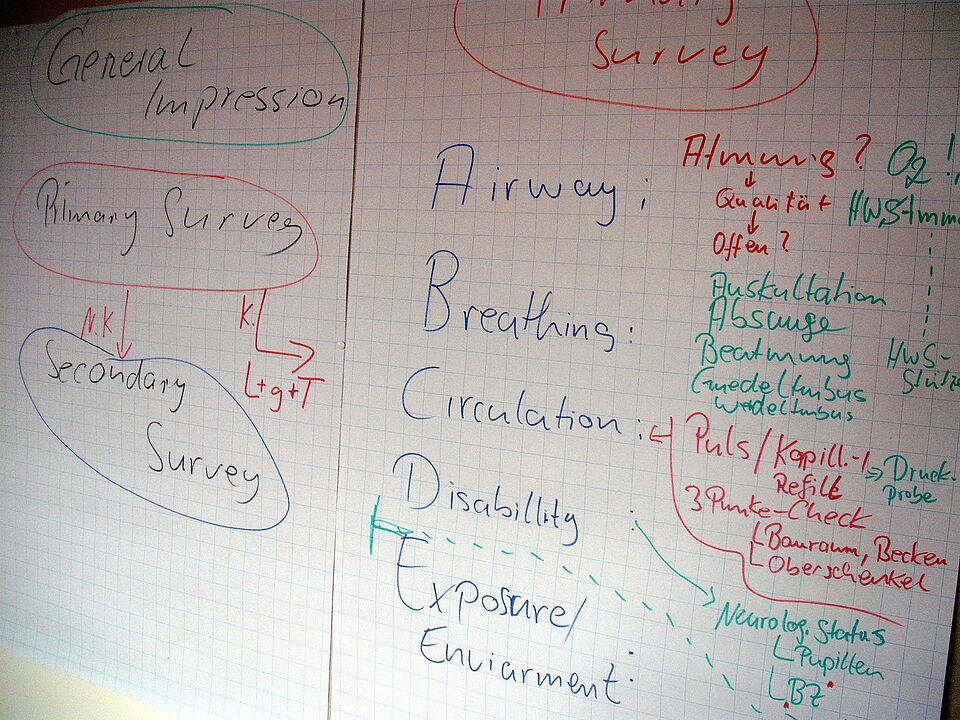 General
Impression
Primary Survey
N.K
K.
L+g+T
Secondary
Survey
Survey
Airway:
Atmung?
Qualität
Offen?
O2!
Breathing:
Auskultation
Absauge
Beatmung
Guedeltubus
Wedeltubus
HWS-
Circulation:
Puls/Kapill.-
Refill
Druck-
probe
3 Punke-Check
Bauraum, Becken
Oberschenkel
Disabillity :
Neurolog. Status
Pupillen
BZ
Exposure/
Enviarment: